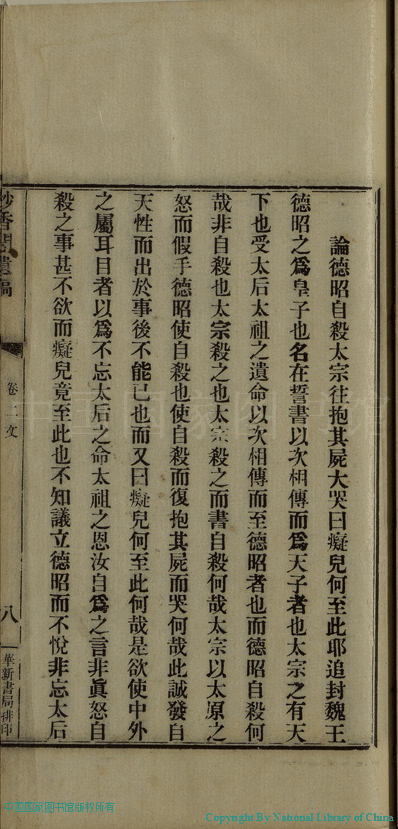 論德昭自殺太宗往抱其屍大哭曰癡兒何至此耶追封魏王
德昭之爲皇子也名在誓書以次相傳而爲天子者也太宗之有天
下也受太后太祖之遺命以次相傳而至德昭者也而德昭自殺何
哉非自殺也太宗殺之也太宗殺之而書自殺何哉太宗以太原之
怒而假手德昭使自殺也使自殺而復抱其屍而哭何哉此誠發自
天性而出於事後不能已也而又曰癡兒何至此何哉是欲使中外
之屬耳目者以爲不忘太后之命太祖之恩汝自爲之言非眞怒自
殺之事甚不欲而癡兒竟至此也不知議立德昭而不悅非忘太后
妙香閣遺稿
卷二文
八
華新書局排印
中国国家图书馆版权所有
Copyright By National Library of China